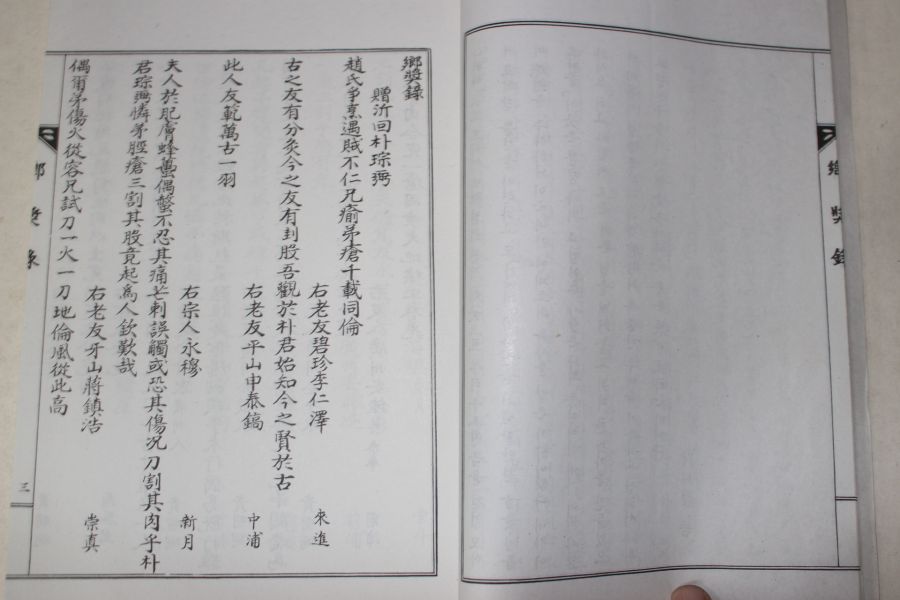 鄉獎錄
贈沂回朴琮
趙氏爭烹遇賊不仁兄瘉弟瘡千載同倫
右老友碧珍李仁澤 來進
古之友有分灸今之友有刲股吾觀於朴君始知今之賢於古
此人友範萬古一羽
右老友平山申泰鎬 中浦
夫人於肥膚蜂蠆偶螫不忍其痛芒刺誤觸或恐其傷况刀割其肉乎朴
右宗人永穆 新月
君琮無憐弟脛瘡三割其股竟起爲人欽歎哉
右老友牙山蔣鎮浩 崇真
偶爾弟傷火從容兄試刀一火一刀地倫風從此高
鄉獎錄
三
鄉獎錄